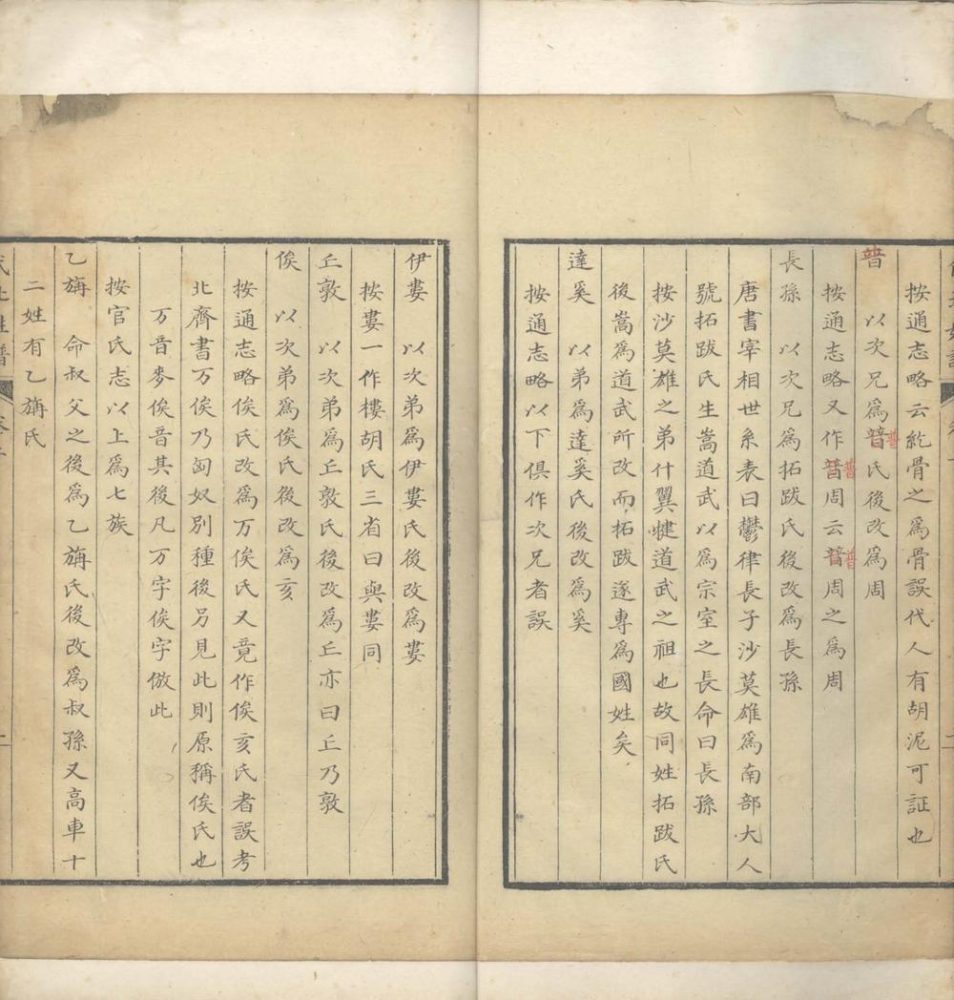 按通志略云紇骨之爲骨誤代人有胡泥可証也
普　以次兄爲普氏後改爲周
普
按通志略又作普周云普周之爲周
普
普
長孫　以次兄爲拓跋氏後改爲長孫
唐書宰相世系表曰鬱律長子沙莫雄爲南部大人
號拓跋氏生嵩道武以爲宗室之長命曰長孫
按沙莫雄之弟什翼犍道武之祖也故同姓拓跋氏
後嵩爲道武所改而拓跋遂專爲國姓矣
達奚　以弟爲達奚氏後改爲奚
按通志略以下俱作次兄者誤
伊婁　以次弟爲伊婁氏後改爲婁
按婁一作樓胡氏三省曰與婁同
丘敦　以次弟爲丘敦氏後改爲丘亦曰丘乃敦
俟　以次弟爲俟氏後改爲亥
按通志略俟氏改爲万俟氏又竟作俟亥氏者誤考
北齊書万俟乃匈奴別種後另見此則原稱俟氏也
万音麥俟音其後凡万字俟字倣此
按官氏志以上爲七族
乙旃　命叔父之後爲乙旃氏後改爲叔孫又高車十
二姓有乙旃氏